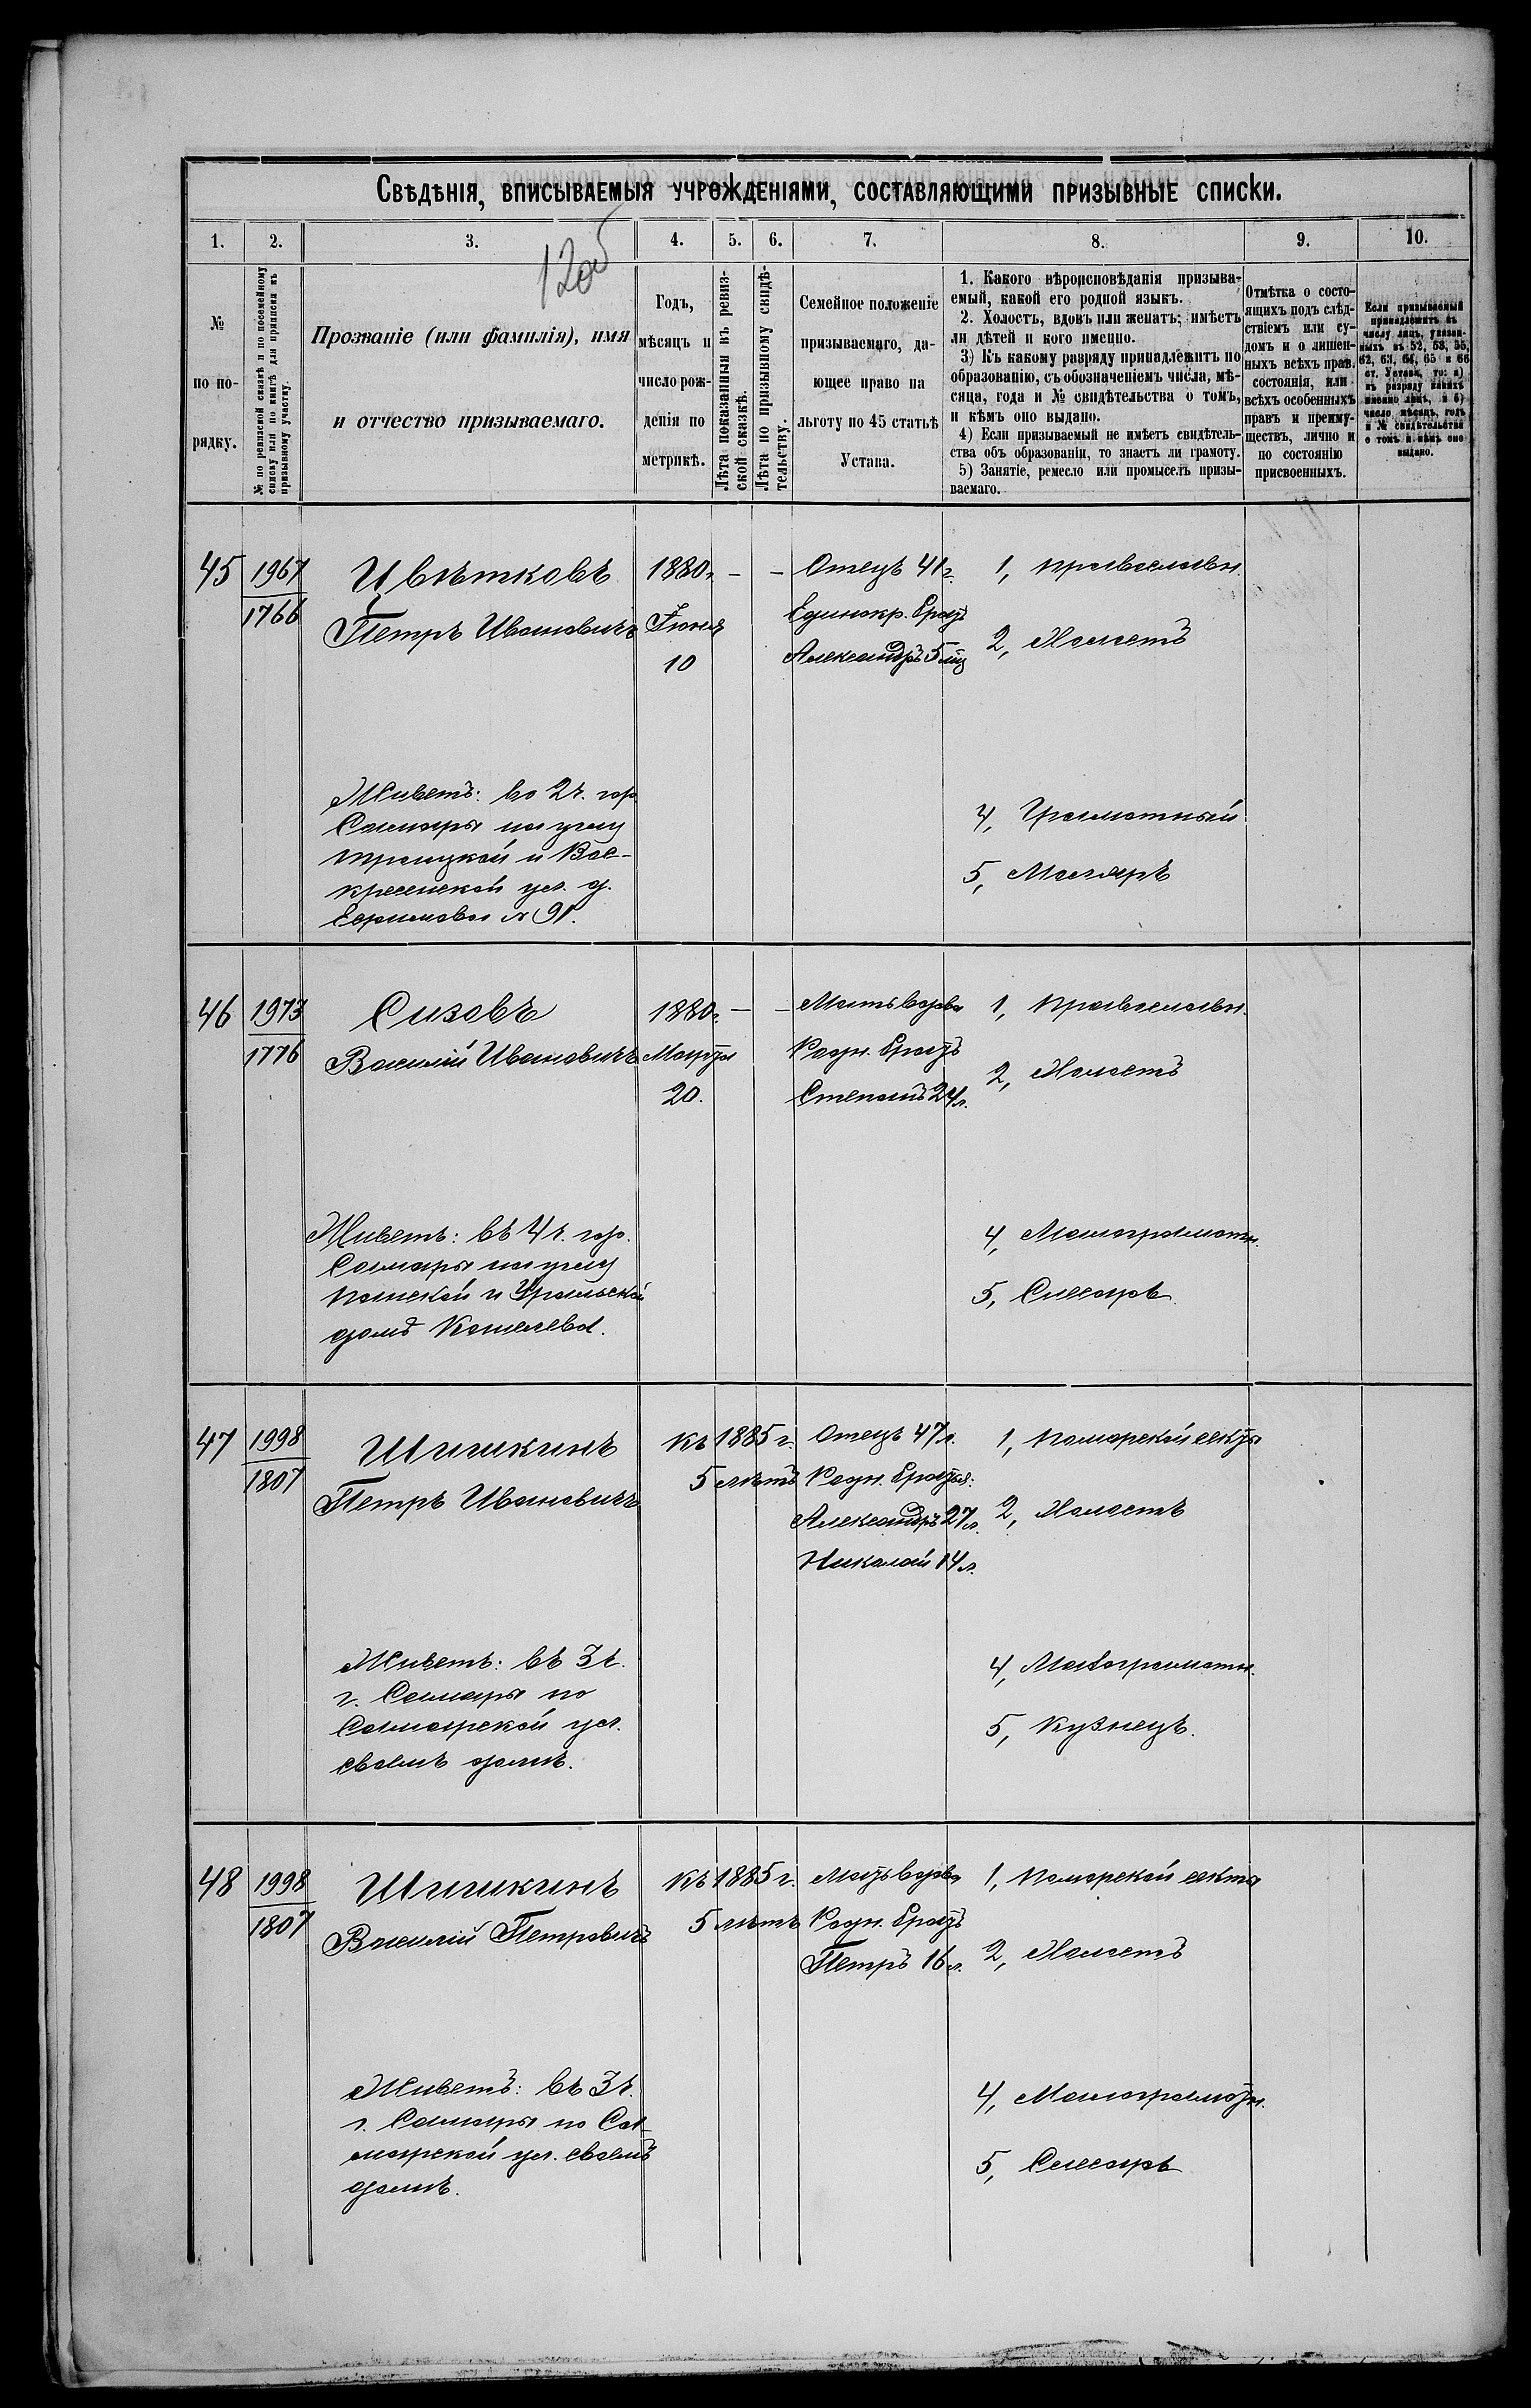 Свѣдѣнія, вписываемыя учрежденіями, составляющими призывные списки.
1. 2. 3. 4. 5. 6. 7. 8. 9. 10.
120об
№ по порядку.
№ по ревизской сказкѣ и по посемейному
списку или по книгѣ для приписки къ
призывному участку.
Прозваніе (или фамилія), имя
и отчество призываемаго.
Годъ,
мѣсяцъ и
число рож-
денія по
метрикѣ.
Лѣта показанныя въ ревиз-
ской сказкѣ.
Лѣта по призывному свидѣ-
тельству.
Семейное положеніе
призываемаго, да-
ющее право на
льготу по 45 статьѣ
Устава.
1. Какого вѣроисповѣданія призыва-
емый, какой его родной языкъ.
2. Холостъ, вдовъ или женатъ; имѣетъ
ли дѣтей и кого именно.
3) Къ какому разряду принадлежитъ по
образованію, съ обозначеніемъ числа, мѣ-
сяца, года и № свидѣтельства о томъ,
и кѣмъ оно выдано.
4) Если призываемый не имѣетъ свидѣтель-
ства объ образованіи, то знаетъ ли грамоту.
5) Занятіе, ремесло или промыселъ призы-
ваемаго.
Отмѣтка о состо-
ящихъ подъ слѣд-
ствіемъ или су-
домъ и о лишен-
ныхъ всѣхъ прав.
состоянія, или
всѣхъ особенныхъ
правъ и преиму-
ществъ, лично и
по состоянію
присвоенныхъ.
Если призываемый
принадлежитъ къ
числу лицъ, указан-
ныхъ въ 52, 53, 55,
62, 63, 64, 65 и 66
ст. Устава, то: а)
къ разряду какихъ
именно лицъ, и б)
число, мѣсяцъ, годъ
и № свидѣтельства
о томъ и кѣмъ оно
выдано.
45 1967 Цвѣтковъ 1880г. — — Отецъ 41г. 1, православн.
1766 Петръ Ивановичъ Іюня Единокр. братъ
10 Александръ 5 мѣс 2, Холостъ
Живетъ: во 2ч. гор.
Самары на углу
Троицкой и Вос-
кресенской ул. д.
Ефимова № 91.
4, Грамотный
5, Маляръ
46 1973 Сизовъ 1880г. — — Мать вдова 1, православн.
1776 Василій Ивановичъ Марта Родн. братъ
20. Степанъ 24л. 2, Холостъ
Живетъ: въ 4ч. гор.
Самары на углу
Полевой и Уральской
домъ Кошелева.
4, Малограмотн.
5, Слесаръ
47 1998 Шишкинъ Къ 1885г. Отецъ 47л. 1, поморской секты
1807 Петръ Ивановичъ 5 лѣтъ Родн. братья:
Александръ 27л. 2, Холостъ
Николай 14л.
Живетъ: въ 3ч.
г. Самары по
Самарской ул.
своемъ домѣ.
4, Малограмотн.
5, Кузнецъ.
48 1998 Шишкинъ Къ 1885г. Мать вдова 1, поморской секты
1807 Василій Петровичъ 5 лѣтъ Родн. братъ
Петръ 16л. 2, Холостъ
Живетъ: въ 3ч.
г. Самары по Са-
марской ул. своемъ
домѣ.
4, Малограмотн.
5, Слесаръ